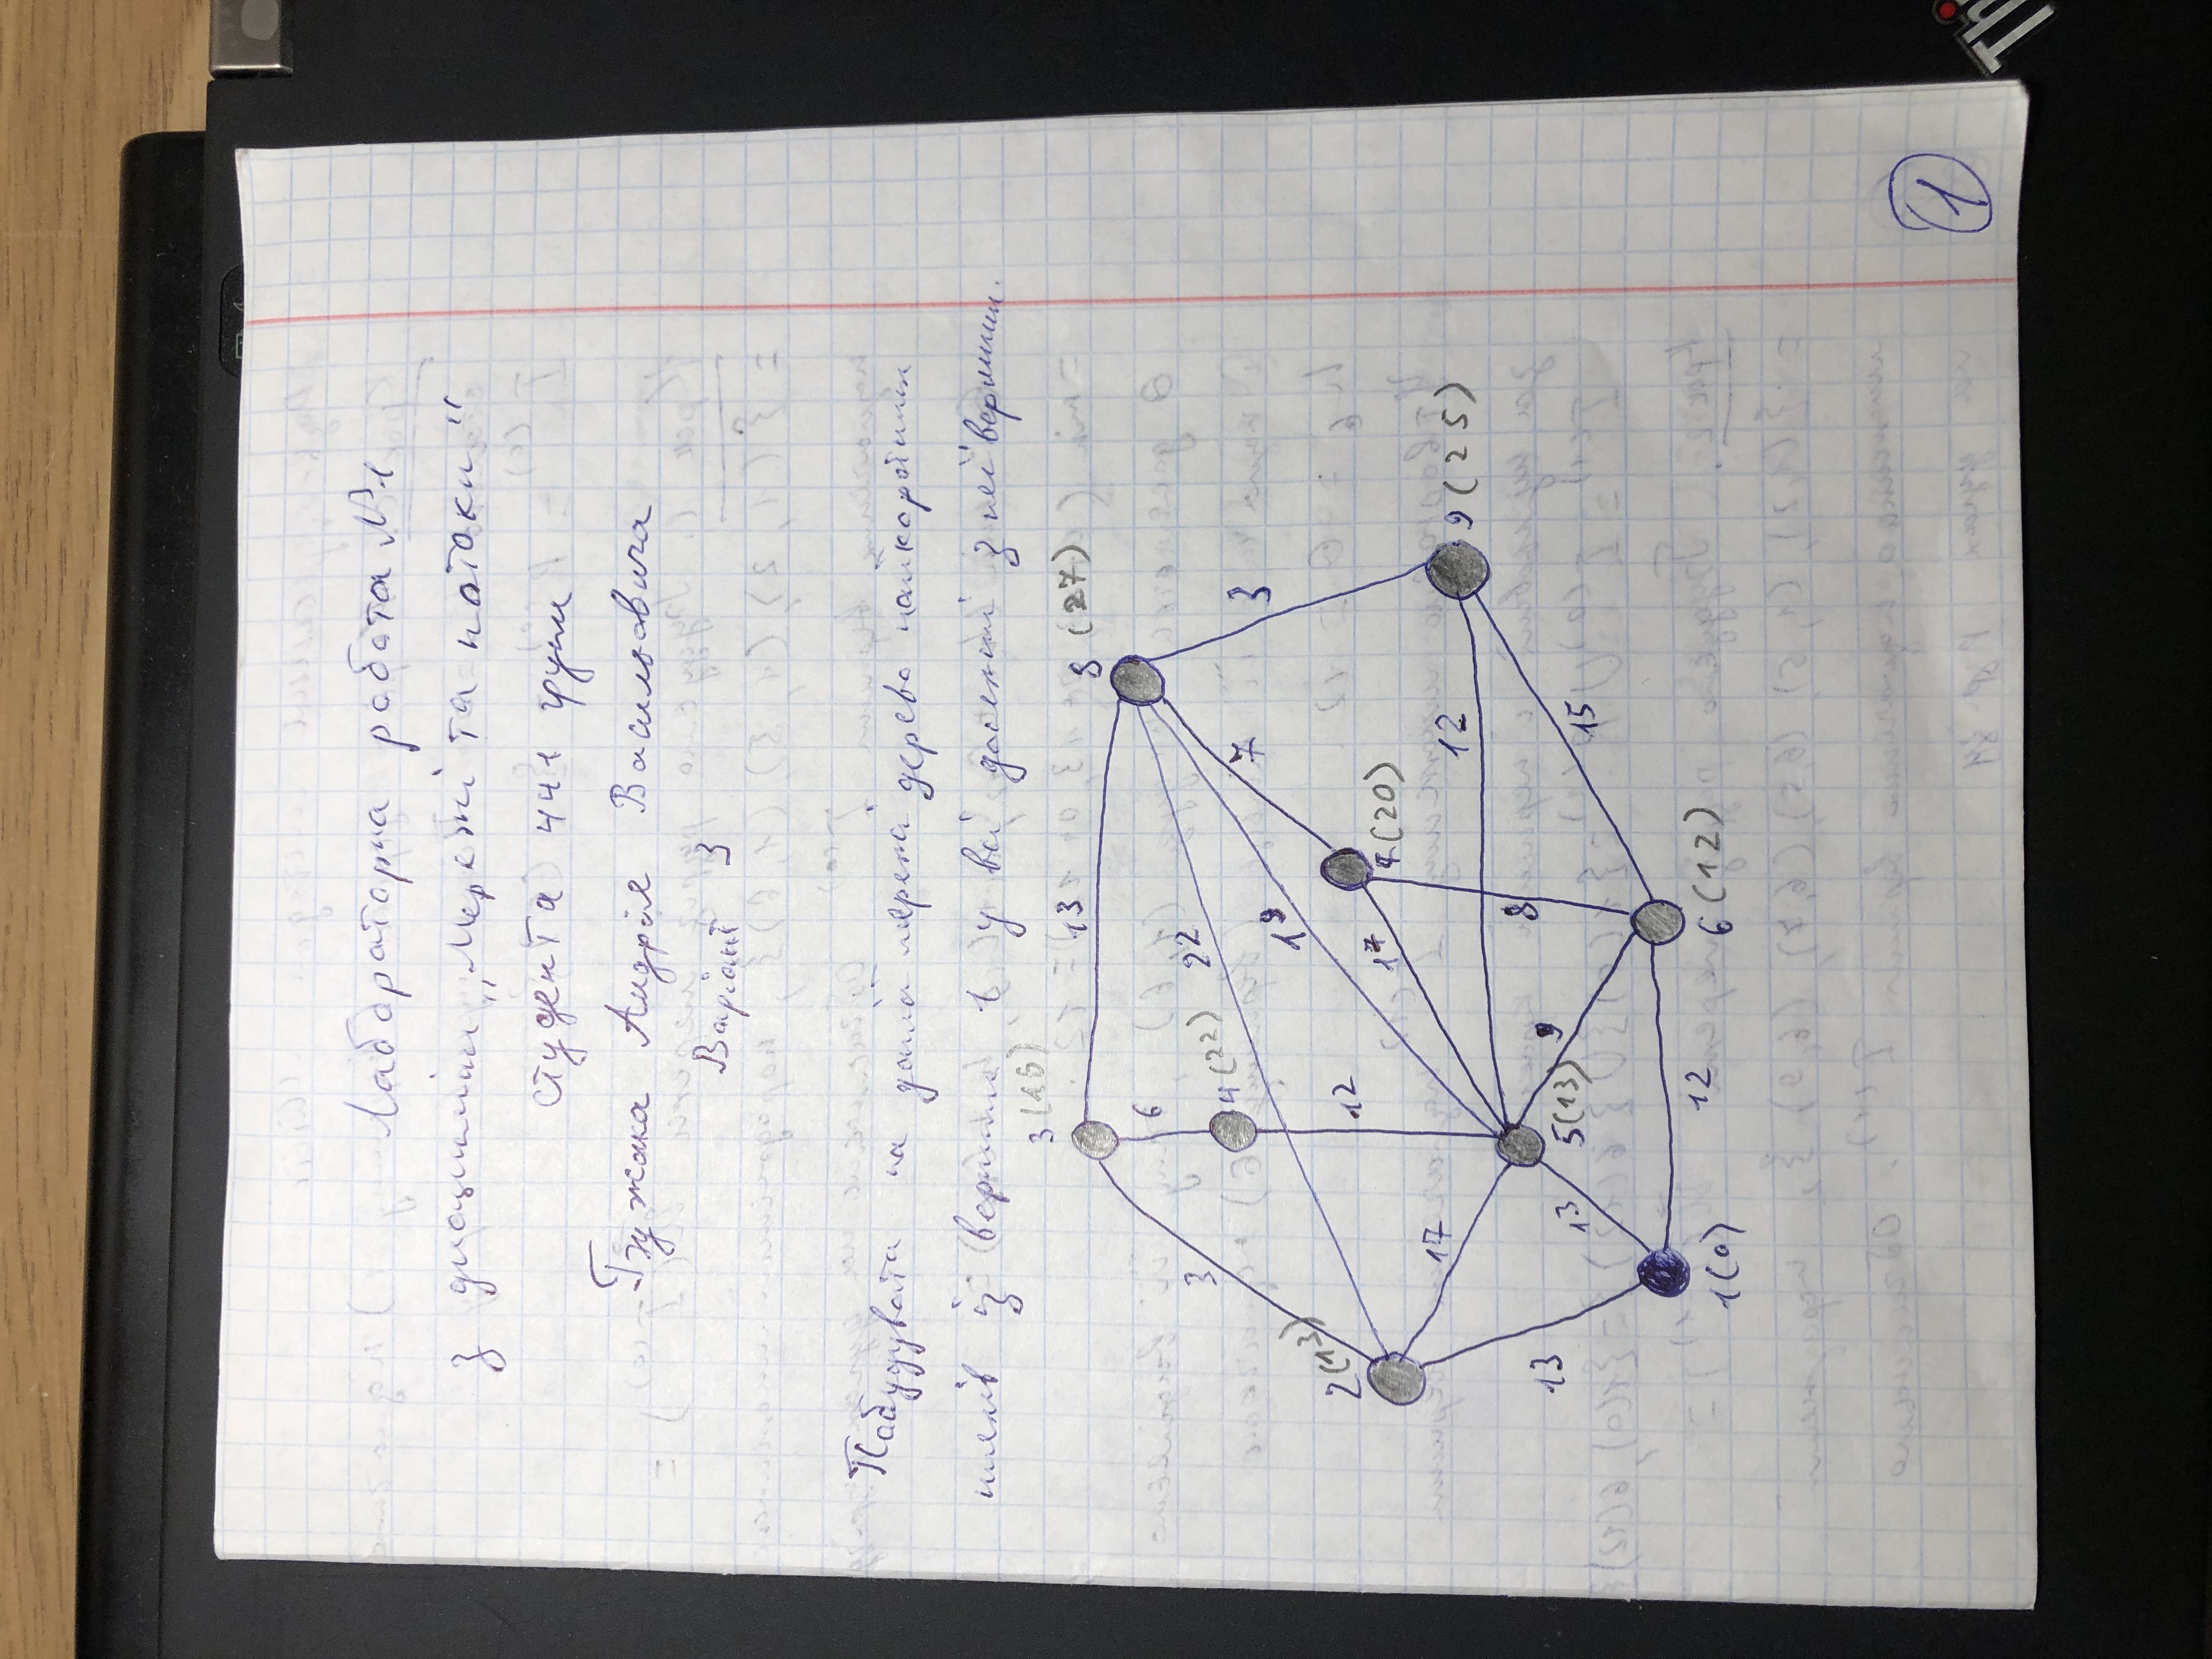 Лабораторна робота №1
з дисципліни „Мережі та потоки“
студента 441 групи
Бужака Андрія Васильовича
Варіант 3
Побудувати на даній мережі дерево найкоротших
шляхів із вершини 1 у всі досяжні з неї вершини.
3(16)
13
8 (27)
6
3
22
4(22)
7
19
3
2(13)
12
17
7(20)
17
12
9(25)
8
13
13
5(13)
9
15
12
6(12)
1(0)
1
Thi